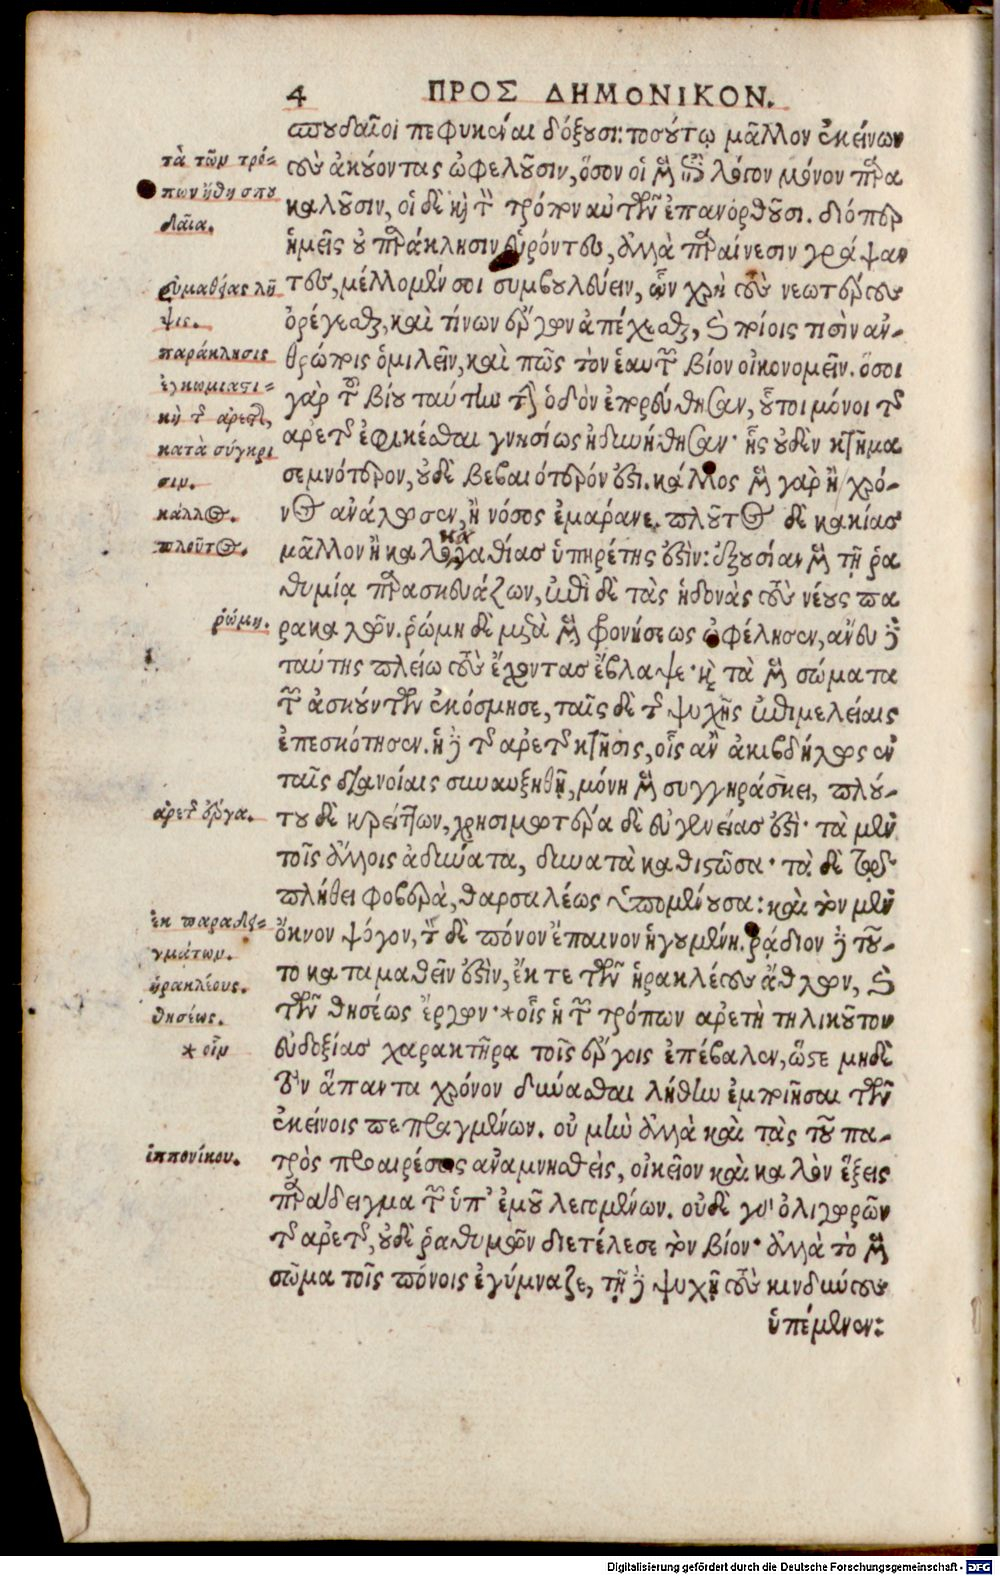 4 ΠΡΟΣ ΔΗΜΟΝΙΚΟΝ.
σπουδαῖοι πεφυκέναι δόξουσι: τοσούτῳ μᾶλλον ἐκείνων
τοὺς ἀκούοντας ὠφελοῦσιν, ὅσον οἱ μὲν ἐπὶ λόγον μόνον παρα
καλοῦσιν, οἱ δὲ καὶ τὸν τρόπον αὐτῶν ἐπανορθοῦσι. διόπερ
ἡμεῖς οὐ παράκλησιν εὑρόντες, ἀλλὰ παραίνεσιν γράψαν
τες, μέλλομέν σοι συμβουλεύειν, ὧν χρὴ τοὺς νεωτέρους
ὀρέγεσθαι, καὶ τίνων ἔργων ἀπέχεσθαι, καὶ ποίοις τισὶν αν-
θρώποις ὁμιλεῖν, καὶ πῶς τὸν ἑαυτῶν βίον οἰκονομεῖν. ὅσοι
γὰρ τοῦ βίου ταύτην τὴν ὁδὸν ἐπορεύθησαν, οὗτοι μόνοι τῆς
αρετῆς ἐφικέσθαι γνησίως ἠδυνήθησαν· ἧς οὐδὲν κτῆμα
σεμνότερον, οὐδὲ βεβαιότερόν ἐστι. κάλλος μὲν γὰρ ἢ χρό-
νος ανάλωσεν, ἢ νόσος ἐμάρανε. πλοῦτος δὲ κακίας
μᾶλλον ἢ καλοκαγαθίας ὑπηρέτης ἐστὶν: ἐξουσίαν μὲν τῇ ῥα
θυμίᾳ παρασκευάζων, ἐπὶ δὲ τὰς ἡδονὰς τοὺς νέους πα
ρακαλῶν. ῥώμη δὲ μετὰ μὲν φρονήσεως ὠφέλησεν, ανευ δὲ
ταύτης πλείω τοὺς ἔχοντας ἔβλαψε· καὶ τὰ μὲν σώματα
τῶν ἀσκούντων ἐκόσμησε, ταῖς δὲ τῆς ψυχῆς ἐπιμελείαις
ἐπεσκότησεν. ἡ δὲ τῆς αρετῆς κτῆσις, οἷς αν ἀκιβδήλως ἐν
ταῖς διανοίαις συναυξηθῇ, μόνη μὲν συγγηράσκει, πλού-
του δὲ κρείττων, χρησιμωτέρα δὲ εὐγενείας ἐστὶ· τὰ μὲν
τοῖς ἄλλοις ἀδύνατα, δυνατὰ καθιστῶσα· τὰ δὲ τῷ
πλήθει φοβερὰ, θαρσαλέως ὑπομένουσα: καὶ τὸν μὲν
ὄκνον ψόγον, τὸν δὲ πόνον ἔπαινον ἡγουμένη. ῥᾴδιον δὲ τοῦ-
το καταμαθεῖν ἐστὶν, ἔκ τε τῶν ἡρακλέους ἄθλων, καὶ
τῶν θησέως ἔργων· *οἷς ἡ τῶν τρόπων αρετὴ τηλικοῦτον
εὐδοξίας χαρακτῆρα τοῖς ἔργοις ἐπέβαλεν, ὥστε μηδὲ
τὸν ἅπαντα χρόνον δύνασθαι λήθην ἐμποιῆσαι τῶν
ἐκείνοις πεπραγμένων. οὐ μὴν ἀλλὰ καὶ τὰς τοῦ πα-
τρὸς προαιρέσεις αναμνησθεὶς, οἰκεῖον καὶ καλὸν ἕξεις
παράδειγμα τῶν ὑπ' ἐμοῦ λεγομένων. οὐδὲ γὰρ ὀλιγωρῶν
τῆς αρετῆς, οὐδὲ ῥαθυμῶν διετέλεσε τὸν βίον· ἀλλὰ τὸ μὲν
σῶμα τοῖς πόνοις ἐγύμναζε, τῇ δὲ ψυχῇ τοὺς κινδύνους
ὑπέμενεν:
τὰ τῶν τρό-
πων ἤθη σπου
δαῖα.
εὐμαθίας λη
ψις.
παράκλησις
ἐγκωμιαστι-
κὴ τῆς αρετῆς,
κατὰ σύγκρι
σιν.
κάλλος.
πλοῦτος.
ῥώμη.
αρετῆς ἔργα.
ἐκ παραδει-
γμάτων.
ἡρακλέους.
θησέως.
* οἷν
ἱππονίκου.
Digitalisierung gefördert durch die Deutsche Forschungsgemeinschaft - DFG